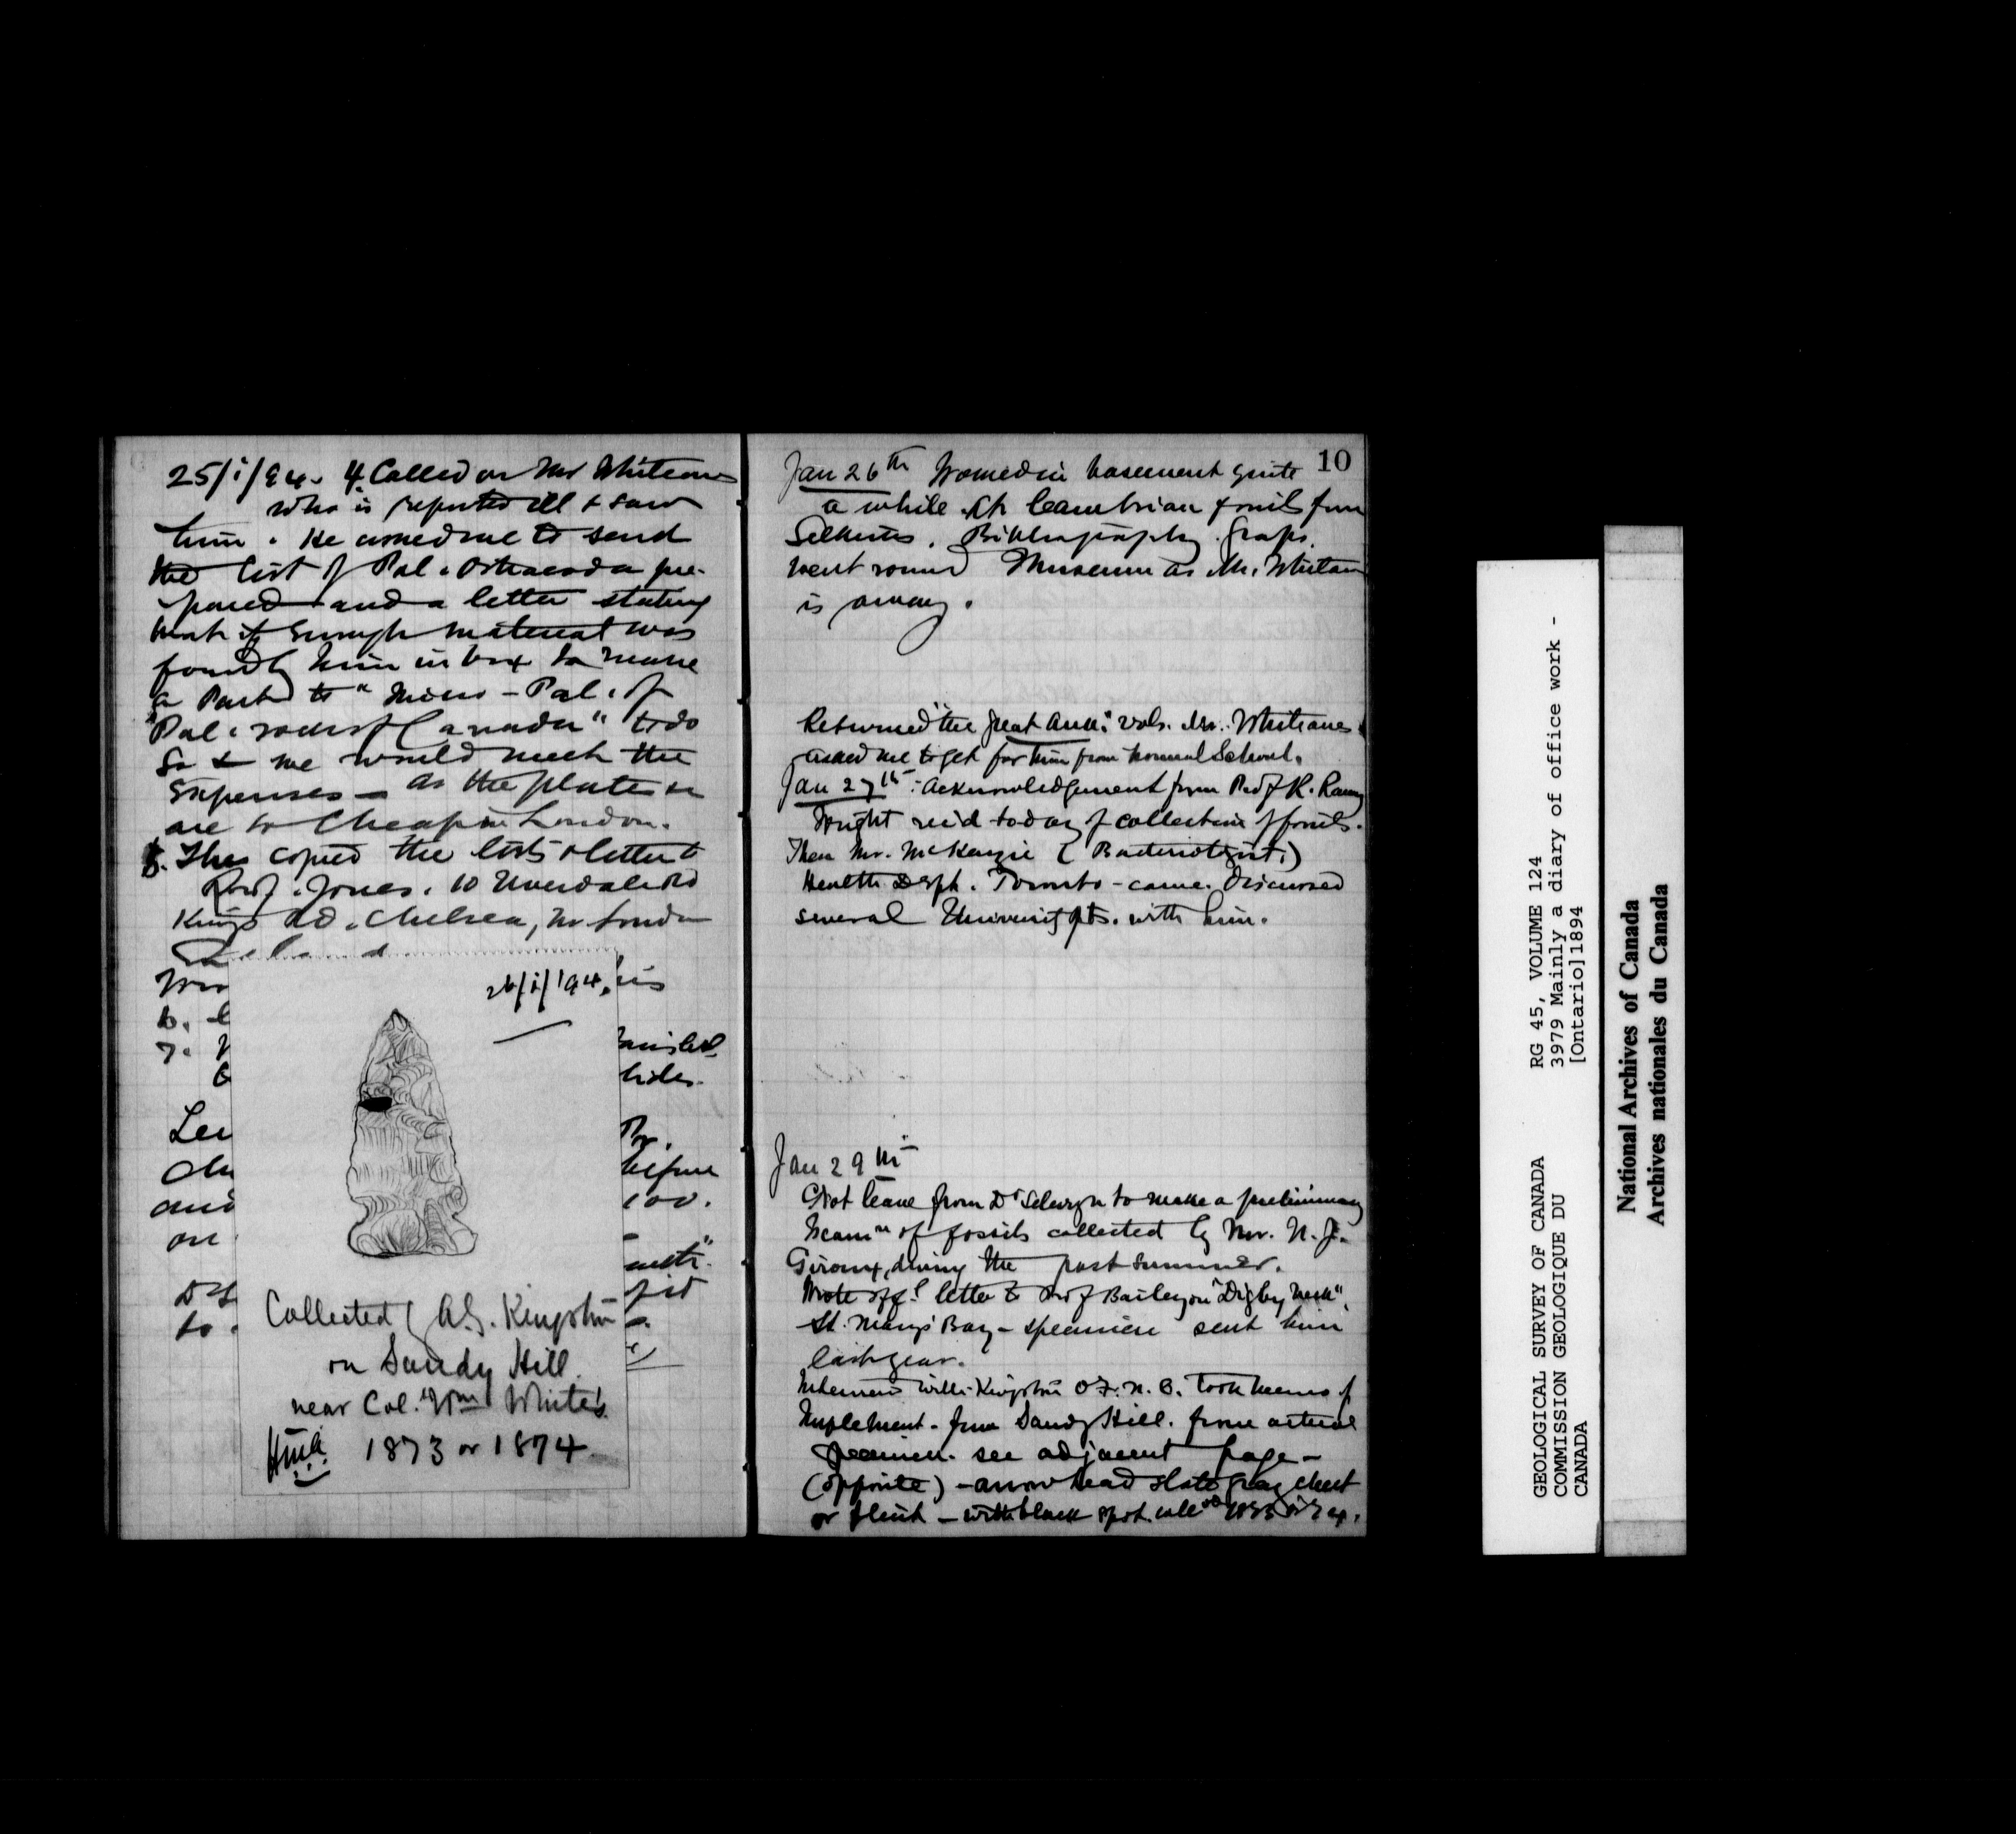 25/i/94. 4. Called on Mr Whiteaves
who is reported ill & saw
him. He asked me to send
the list of Pal. Ostracoda pre-
pared and a letter stating
that if enough material was
found by him in box to make
a Part to "Micro-Pal. of
Pal. rocks of Canada" to do
so & we would meet the
expenses — as the plates
are so cheap in London.
5. Then copied the lists & letter to
Prof. Jones. 10 Uverdale Rd
Kings Rd. Chelsea, Nr. London
his
6.
7.
hides.
before
and
100.
on
to
26/i/'94.
Collected by A.G. Kingston
on Sandy Hill
near Col. Wm White's
1873 or 1874.
10
Jan 26th Worked in basement quite
a while at Cambrian fossils from
Selkirks. Bibliography Graps.
Went round Museum as Mr. Whiteaves
is away.
Returned "the great Auk." vols. Mr. Whiteaves
asked me to get for him from Normal School.
Jan 27th: Acknowledgement from Prof R. Ramsay
Wright rec'd today of collection of fossils.
Then Mr. McKenzie (Bacteriologist.)
Health Dept. Toronto - came. Discussed
several University pts. with him.
Jan 29th
Got leave from Dr Selwyn to make a preliminary
Exam n of fossils collected by Mr. N. J.
Giroux, during the past summer.
Wrote off l letter to Prof Bailey on "Digby Neck",
St. Mary's Bay - specimen sent him
last year.
Interview with Kingston O.F.N.C. Took
Implement - from Sandy Hill. from actual
specimen. see adjacent page -
(opposite) - arrow head slate gray chert
or flint - with black spot.
GEOLOGICAL SURVEY OF CANADA
COMMISSION GEOLOGIQUE DU
CANADA
RG 45, VOLUME 124
3979 Mainly a diary of office work -
[Ontario]1894
National Archives of Canada
Archives nationales du Canada